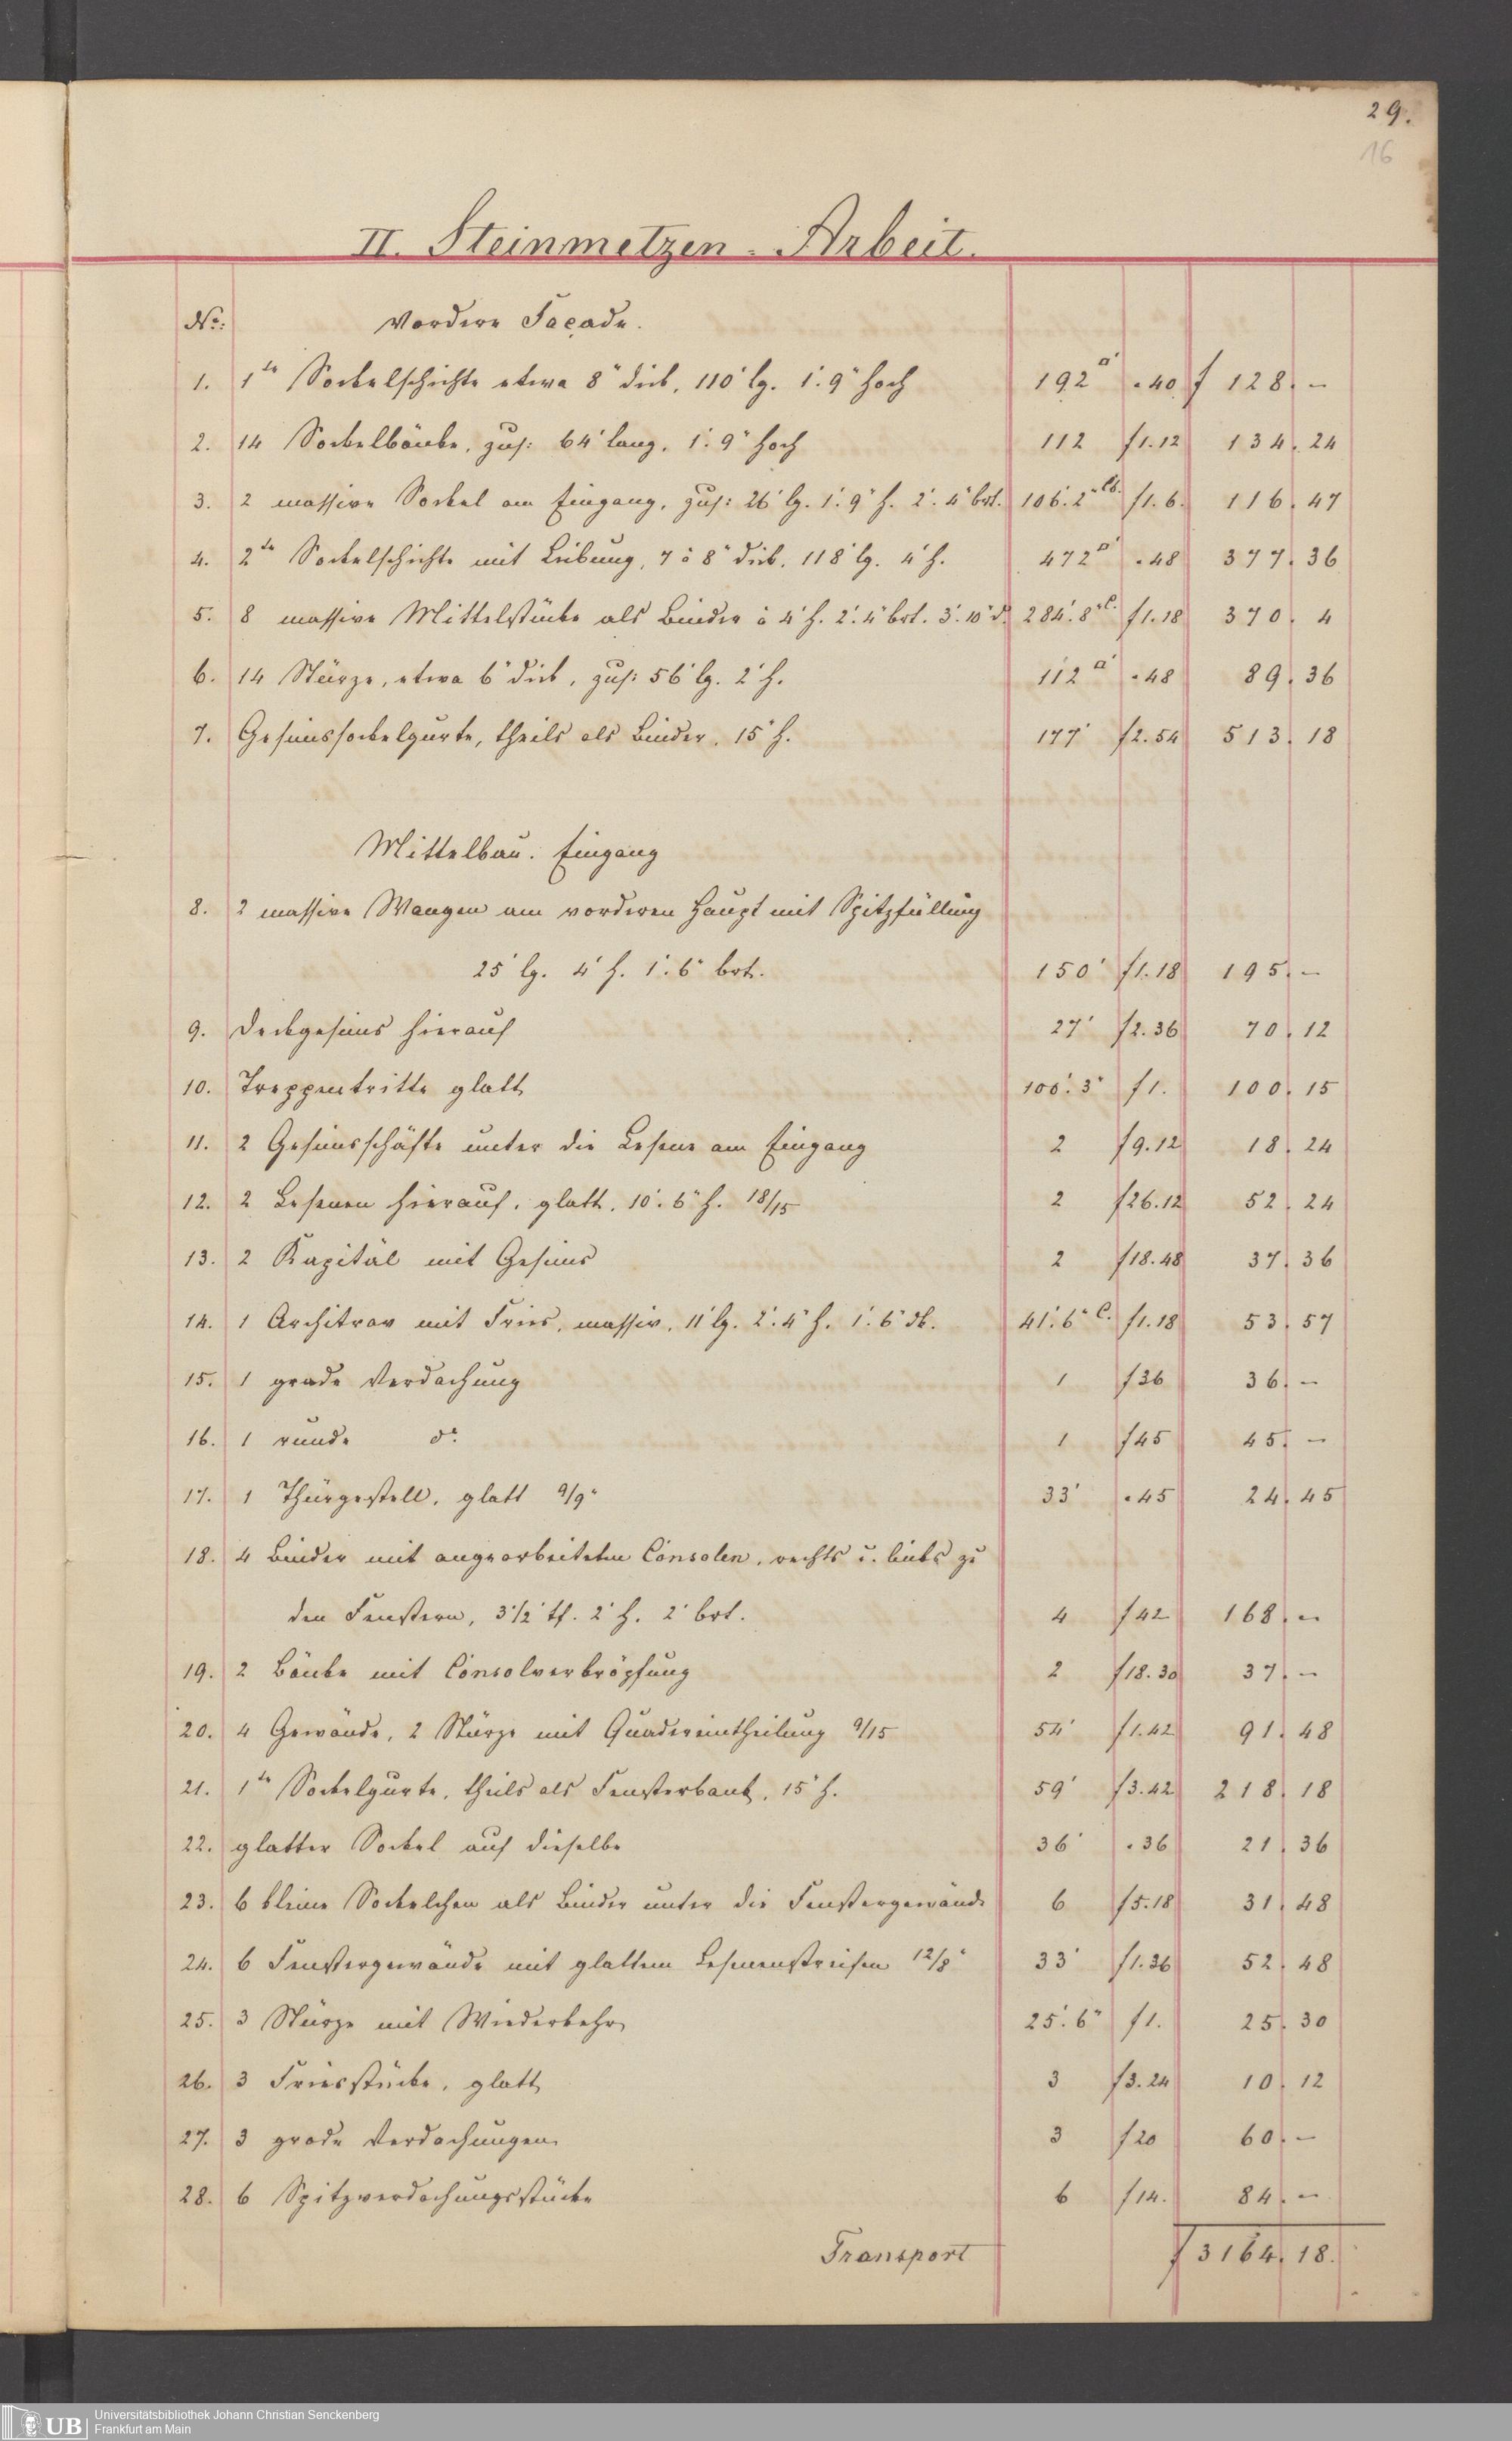 29.
16
II. Steinmetzen-Arbeit.
No: Vordere Façade.
1. 1te Sockelschichte etwa 8" dick, 110' lg. 1'.9" hoch 192□' .40 f 128.-
2. 14 Sockelbänke, zus: 64' lang, 1'.9" hoch 112 f1.12 134.24
3. 2 massive Sockel am Eingang, zus: 26' lg. 1'.9" h. 2'.4" brt. 106'.2" Cb. f1.6. 116.47
4. 2te Sockelschichte mit Leibung, 7 à 8" dick, 118' lg. 4' h. 472□' .48 377.36
5. 8 massive Mittelstücke als Binder à 4' h. 2'.4" brt. 3'.10" d. 284'.8" C. f1.18 370.4
6. 14 Stürze, etwa 6" dick, zus: 56' lg. 2' h. 112□' .48 89.36
7. Gesimssockelgurte, theils als Binder, 15" h. 177' f2.54 513.18
Mittelbau. Eingang
8. 2 massive Wangen am vorderen Haupt mit Spitzfüllung
25' lg. 4' h. 1'.6" brt. 150' f1.18 195.-
9. Deckgesims hierauf 27' f2.36 70.12
10. Treppentritte glatt 100'.3" f1. 100.15
11. 2 Gesimsschäfte unter die Lesene am Eingang 2 f9.12 18.24
12. 2 Lesenen hierauf, glatt, 10'.6" h. 18/15 2 f26.12 52.24
13. 2 Kapitäl mit Gesims 2 f18.48 37.36
14. 1 Architrav mit Fries, massiv, 11' lg. 2'.4" h. 1'.6" dk. 41'.6" C. f1.18 53.57
15. 1 grade Verdachung 1 f36 36.-
16. 1 runde do. 1 f45 45.-
17. 1 Thürgestell, glatt 9/9" 33' .45 24.45
18. 4 Binder mit angearbeiteten Consolen, rechts u. links zu
den Fenstern, 3 1/2' tf. 2' h. 2' brt. 4 f42 168.-
19. 2 Bänke mit Consolverkröpfung 2 f18.30 37.-
20. 4 Gewände, 2 Stürze mit Quadereintheilung 9/15 54' f1.42 91.48
21. 1te Sockelgurte, theils als Fensterbank, 15" h. 59' f3.42 218.18
22. glatter Sockel auf dieselbe 36' .36 21.36
23. 6 kleine Sockelchen als Binder unter die Fenstergewände 6 f5.18 31.48
24. 6 Fenstergewände mit glattem Lesenenstreifen 12/8" 33' f1.36 52.48
25. 3 Stürze mit Wiederkehr 25'.6" f1. 25.30
26. 3 Friesstücke, glatt 3 f3.24 10.12
27. 3 grade Verdachungen 3 f20 60.-
28. 6 Spitzverdachungsstücke 6 f14. 84.-
Transport f 3164.18.
UB
Universitätsbibliothek Johann Christian Senckenberg
Frankfurt am Main